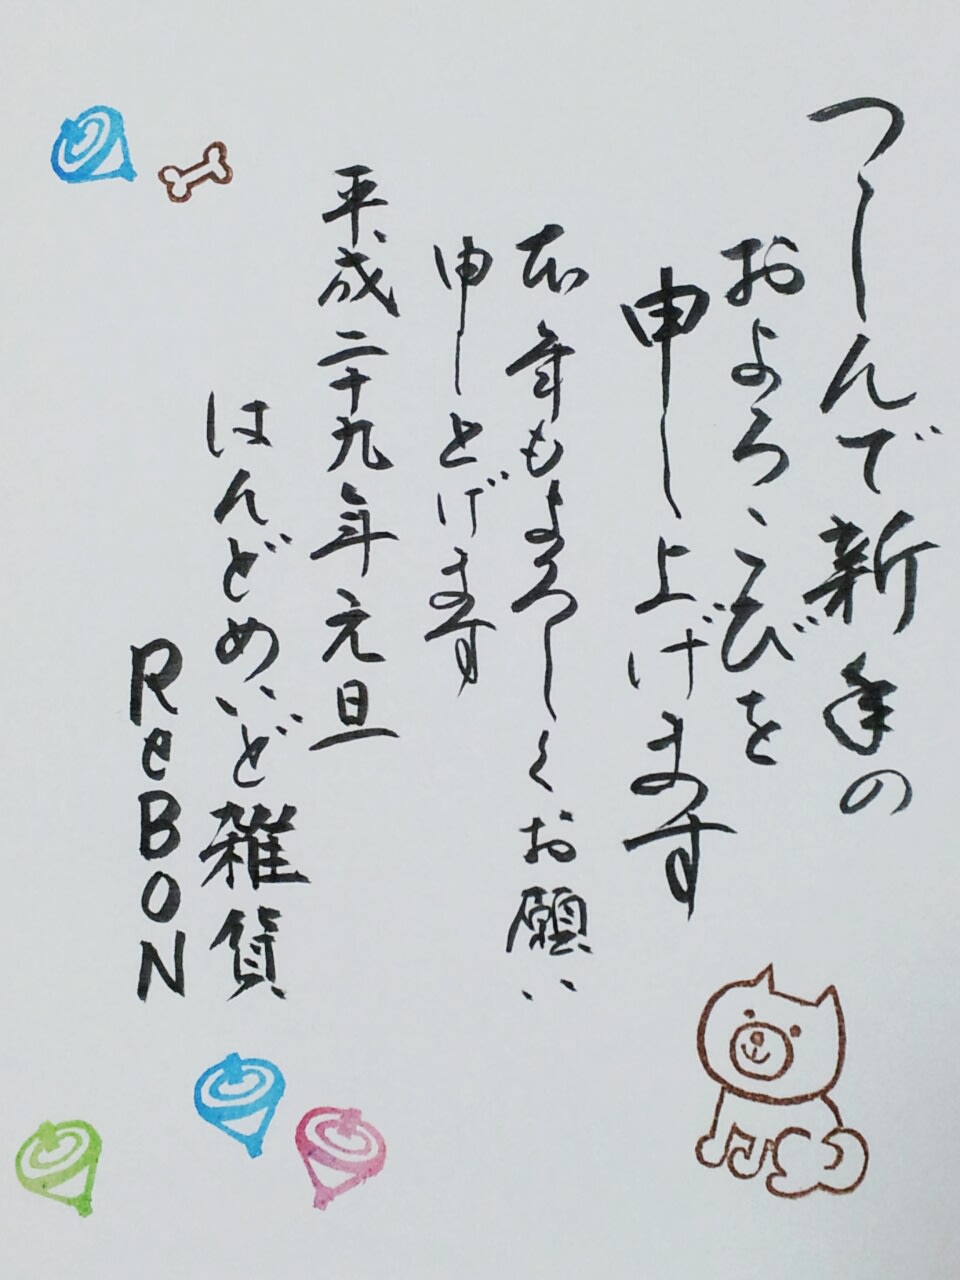 つしんで新年の
およろこびを
申し上げます
本年もよろしくお願い
申し上げます
平成二十九年元旦
はんどめいど雑貨
ReBON